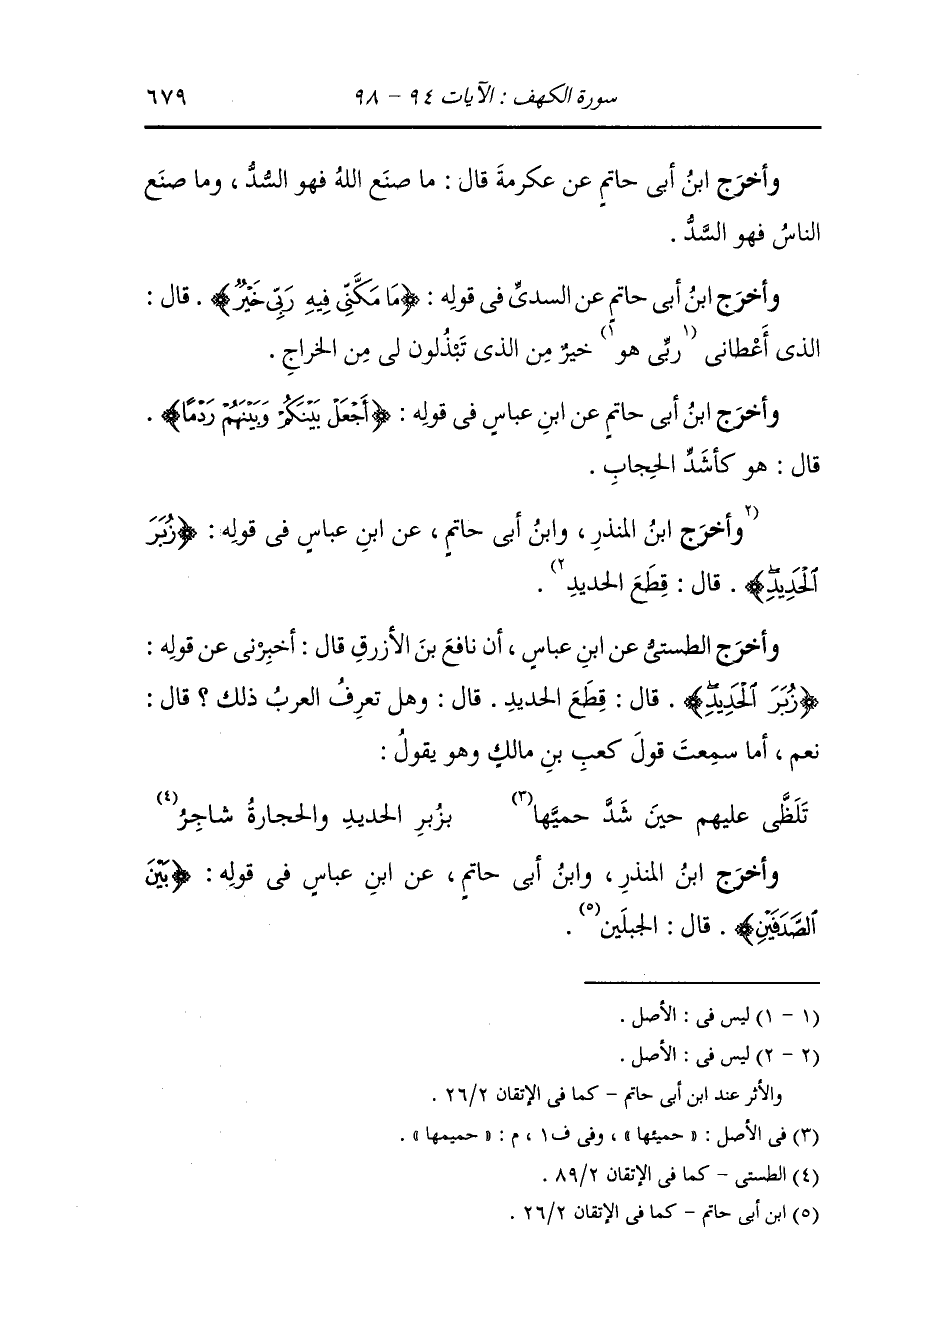 سورة الكهف : الآيات ٩٤ – ٩٨ ٦٧٩
وأخرَج ابنُ أبى حاتمٍ عن عكرمةَ قال : ما صنَع اللهُ فهو السُّدُّ ، وما صنَع
الناسُ فهو السَّدُّ .
وأخرَج ابنُ أبى حاتمٍ عن السدىِّ فى قولِه : ﴿مَا مَكَّنِّى فِيهِ رَبِّى خَيْرٌ﴾ . قال :
الذى أَعْطانى (١ربِّى هو١) خيرٌ مِن الذى تَبْذُلون لى مِن الخراجِ .
وأخرَج ابنُ أبى حاتمٍ عن ابنِ عباسٍ فى قولِه : ﴿أَجْعَلْ بَيْنَكُمْ وَبَيْنَهُمْ رَدْمًا﴾ .
قال : هو كأشَدِّ الحِجابِ .
(٢وأخرَج ابنُ المنذرِ ، وابنُ أبى حاتمٍ ، عن ابنِ عباسٍ فى قولِه : ﴿زُبَرَ
ٱلْحَدِيدِۖ﴾ . قال : قِطَعَ الحديدِ٢) .
وأخرَج الطستىُّ عن ابنِ عباسٍ ، أن نافعَ بنَ الأزرقِ قال : أخبِرْنى عن قولِه :
﴿زُبَرَ ٱلْحَدِيدِۖ﴾ . قال : قِطَعَ الحديدِ . قال : وهل تعرِفُ العربُ ذلك ؟ قال :
نعم ، أما سمِعتَ قولَ كعبِ بنِ مالكٍ وهو يقولُ :
تَلَظَّى عليهم حينَ شَدَّ حميَّها(٣) بزُبرِ الحديدِ والحجارةُ شاجِرُ(٤)
وأخرَج ابنُ المنذرِ ، وابنُ أبى حاتمٍ ، عن ابنِ عباسٍ فى قولِه : ﴿بَيْنَ
ٱلصَّدَفَيْنِ﴾ . قال : الجبلَين(٥) .
(١ – ١) ليس فى : الأصل .
(٢ – ٢) ليس فى : الأصل .
والأثر عند ابن أبى حاتم – كما فى الإتقان ٢٦/٢ .
(٣) فى الأصل : « حميئها » ، وفى ف١ ، م : « حميمها » .
(٤) الطستى – كما فى الإتقان ٨٩/٢ .
(٥) ابن أبى حاتم – كما فى الإتقان ٢٦/٢ .